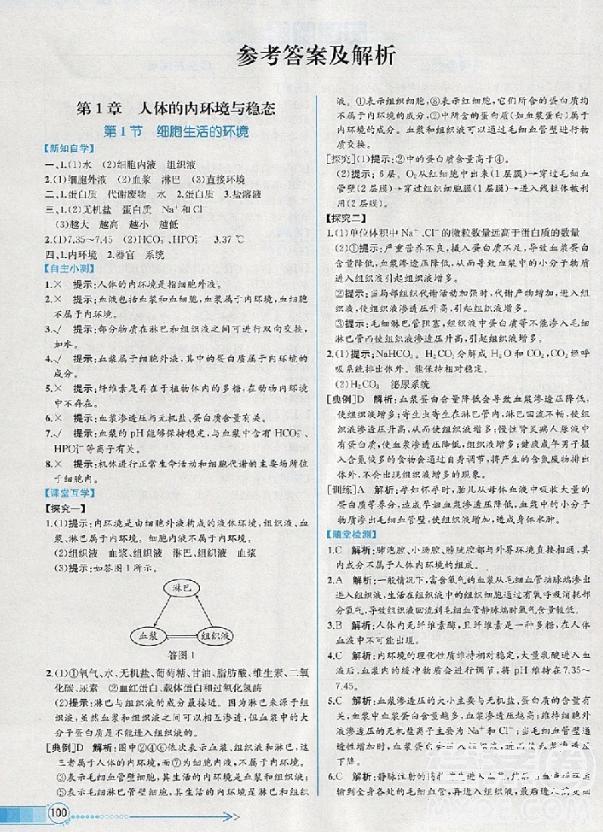 参考答案及解析
第1章 人体的内环境与稳态
第1节 细胞生活的环境
【新知自学】
一、1.(1)水 (2)细胞内液 组织液
2.(1)细胞外液 (2)血浆 淋巴 (3)直接环境
二、1.蛋白质 代谢废物 水 2.蛋白质 盐溶液
三、1.(2)无机盐 蛋白质 Na⁺和Cl⁻
(3)越大 越高 越小 越低
2.(1)7.35~7.45 (2)HCO₃⁻、HPO₄²⁻ 3.37 ℃
四、1.内环境 2.器官 系统
【自主小测】
1.× 提示:人体的内环境是指细胞外液。
2.× 提示:血液包括血浆和血细胞,血浆属于内环境,血细胞
不属于内环境。
3.√ 提示:部分物质在淋巴和组织液之间可进行双向交换,
如水。
4.√ 提示:血浆属于细胞外液,其中的蛋白质属于内环境的
成分。
5.× 提示:纤维素是存在于植物体内的多糖,在动物内环境
中不存在。
6.× 提示:血浆渗透压与无机盐、蛋白质含量有关。
7.√ 提示:血浆的pH能够保持稳定,与血浆中含有HCO₃⁻、
HPO₄²⁻等离子有关。
8.× 提示:机体进行正常生命活动和细胞代谢的主要场所位
于细胞内。
【课堂互学】
[探究一]
1.(1)提示:内环境是由细胞外液构成的液体环境,组织液、血
浆、淋巴属于内环境。细胞内液不属于内环境。
(2)组织液 血浆、组织液 淋巴、组织液 血浆
(3)提示:如答图1所示。
淋巴
血浆
组织液
答图1
2.(1)①氧气、水、无机盐、葡萄糖、甘油、脂肪酸、维生素、二氧
化碳、尿素 ②血红蛋白、载体蛋白和过氧化氢酶
(2)提示:淋巴与组织液的成分最接近。因为淋巴来源于组
织液,虽然血浆和组织液之间可以相互渗透,但血浆中的大
分子蛋白质是不能进入组织液的。
[典例]D 解析:图中②④⑥依次表示血浆、组织液和淋巴,这
三者属于人体内环境,而⑦为细胞内液,不属于内环境。
③表示毛细血管壁细胞,其生活的内环境是血浆和组织液;
⑤表示毛细淋巴管壁细胞,其生活的内环境为淋巴和组织
100
液。①表示组织细胞,⑧表示红细胞,它们所含的蛋白质均
不属于内环境的成分,②中所含的蛋白质(如血浆蛋白)属于
内环境的成分。血浆和组织液可以通过毛细血管壁进行物
质交换。
[探究](1)提示:②中的蛋白质含量高于④。
(2)提示:8层。O₂从红细胞中出来(1层膜)→穿过毛细血
管壁(2层膜)→穿过组织细胞膜(1层膜)→进入线粒体被利
用(2层膜)。
【探究二】
1.(1)单位体积中Na⁺、Cl⁻的微粒数量远高于蛋白质的数量
(2)①提示:严重营养不良,摄入蛋白质不足,导致血浆蛋白
含量降低,血浆渗透压降低,从而导致血浆中的小分子物质
进入组织液引起组织液增多。
②提示:当局部组织代谢活动加强时,代谢产物增加,进入组
织液,使组织液渗透压升高,引起组织液增多。
③提示:毛细淋巴管阻塞,组织液中蛋白质等不能渗入毛细
淋巴管而使组织液渗透压升高,引起组织液增多。
2.(1)提示:NaHCO₃。H₂CO₃分解成H₂O和CO₂,CO₂经呼
吸系统排出体外。能保持相对稳定。
(2)H₂CO₃ 泌尿系统
[典例]D 解析:血浆蛋白含量降低会导致血浆渗透压降低,
使组织液增多;寄生虫寄生在淋巴管内,淋巴回流不畅,使组
织液中渗透压升高,从而使组织液增多;慢性肾炎病人尿液中
有蛋白质,使血浆渗透压降低,组织液增多;健康成年男子摄
入含氮较多的食物会通过自身调节,将产生的含氮废物排出
体外,不会出现组织液增多的现象。
[训练]A 解析:孕妇怀孕时,胎儿从母体血液中吸收大量的
蛋白质等养分,造成母体血浆渗透压降低,血浆中的小分子
物质渗出毛细血管壁,使组织液增加,造成身体水肿。
【随堂检测】
1.C 解析:输卵腔、小肠腔、膀胱腔都与外界环境直接相通,其
内成分不属于人体内环境的组成。
2.A 解析:一般情况下,富含氧气的血浆从毛细血管动脉端渗出
进入组织液,生活在组织液中的组织细胞通过有氧呼吸消耗部
分氧气,导致组织液回流到毛细血管静脉端时氧气含量较低。
3.B 解析:人体内无纤维素酶,且纤维素是一种多糖,在人体
血液中不可能出现。
4.C 解析:内环境的理化性质维持相对稳定,大量乳酸进入血
液后,血浆内的缓冲物质会进行调节,将pH维持在7.35~
7.45。
5.C 解析:血浆渗透压的大小主要与无机盐、蛋白质的含量有
关,血浆中蛋白质含量越多,血浆渗透压越高;维持细胞外
液渗透压的离子主要为Na⁺和Cl⁻;当血浆中
6.C 解析:静脉注射的
输到全身各处的毛细血管,再进入组织液,最后